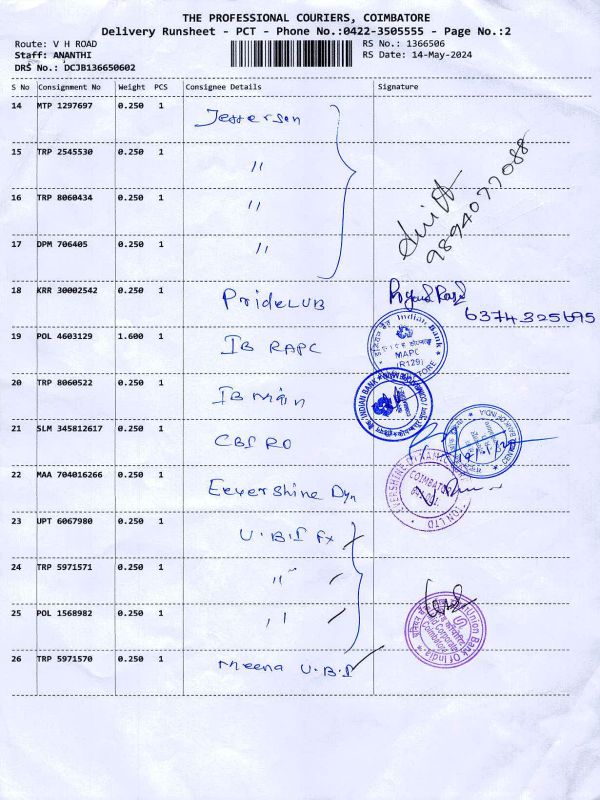 THE PROFESSIONAL COURIERS, COIMBATORE
Delivery Runsheet - PCT - Phone No.:0422-3505555 - Page No.:2
Route: V H ROAD
RS No.: 1366506
Staff: ANANTHI
RS Date: 14-May-2024
DRS No.: DCJB136650602
S No Consignment No Weight PCS Consignee Details Signature
14 MTP 1297697 0.250 1 Jefferson
15 TRP 2545530 0.250 1 "
16 TRP 8060434 0.250 1 "
9894077088
17 DPM 706405 0.250 1 "
18 KRR 30002542 0.250 1 PrideLUB
6374325695
19 POL 4603129 1.600 1 IB RAPC
Indian Bank
MAPC
(R129)
20 TRP 8060522 0.250 1 IB Main
INDIAN BANK
21 SLM 345812617 0.250 1 CBI RO
22 MAA 704016266 0.250 1 Eevershine Dyn
COIMBATORE
23 UPT 6067980 0.250 1 U.B.I Fx
24 TRP 5971571 0.250 1 "
25 POL 1568982 0.250 1 "
Union Bank Of India
Coimbatore
26 TRP 5971570 0.250 1 Meena U.B.I